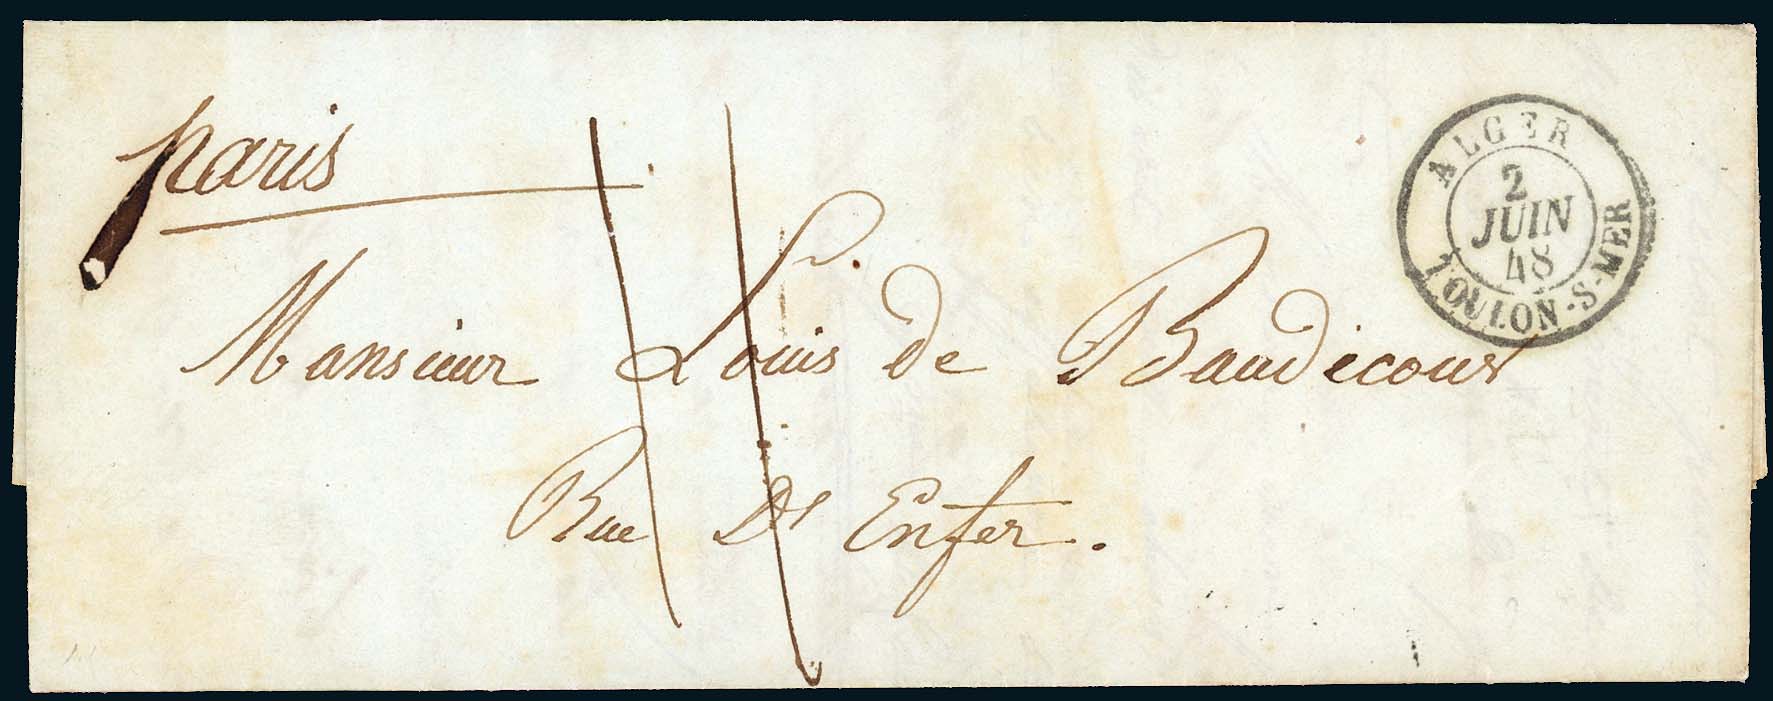 paris
ALGER
2
JUIN
48
TOULON-S-MER
Monsieur Louis de Baudicour
Rue D' Enfer.